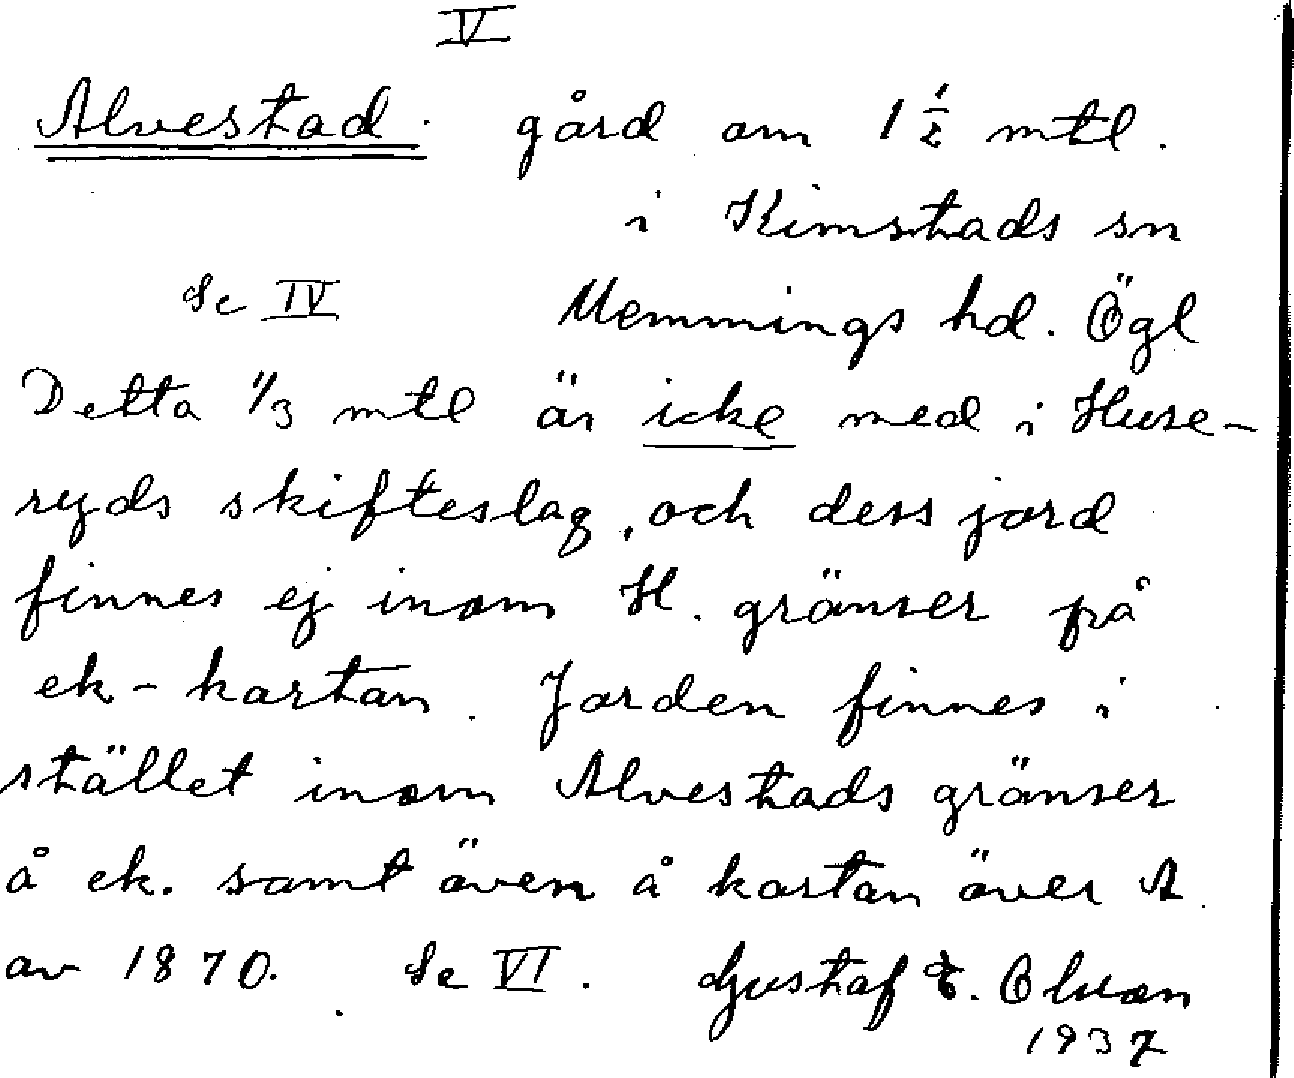 V
Alvestad. gård om 1 1/2 mtl.
i Kimstads sn
Se IV Memmings hd. Ögl
Detta 1/3 mtl är icke med i Huse-
ryds skifteslag, och dess jord
finnes ej inom H. gränser på
ek-kartan. Jorden finnes i
stället inom Alvestads gränser
å ek. samt även å kartan över A.
av 1870. Se VI. Gustaf E. Olsson
1937